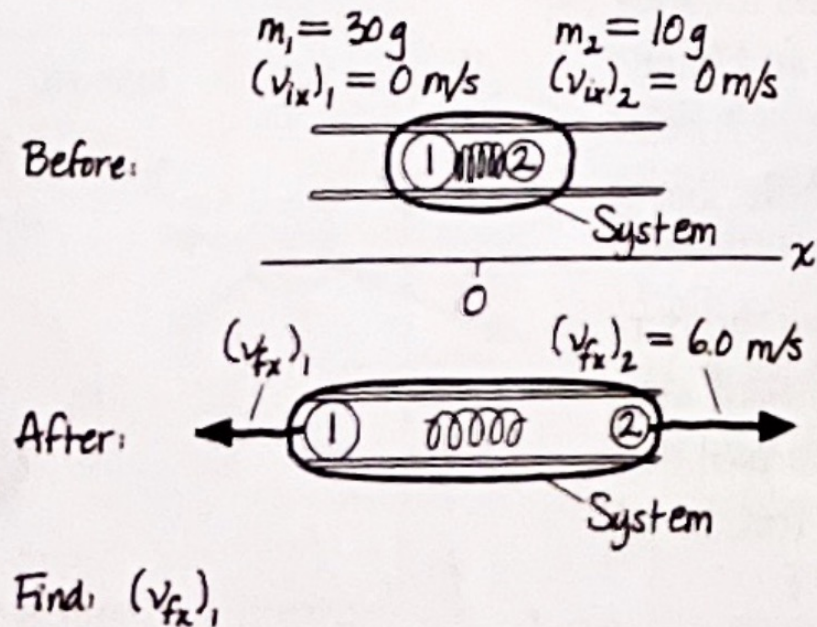 m₁ = 30 g m₂ = 10 g
(vᵢₓ)₁ = 0 m/s (vᵢₓ)₂ = 0 m/s
Before:
1 2
System
x
0
(v_fx)₁ (v_fx)₂ = 6.0 m/s
After:
1 2
System
Find: (v_fx)₁